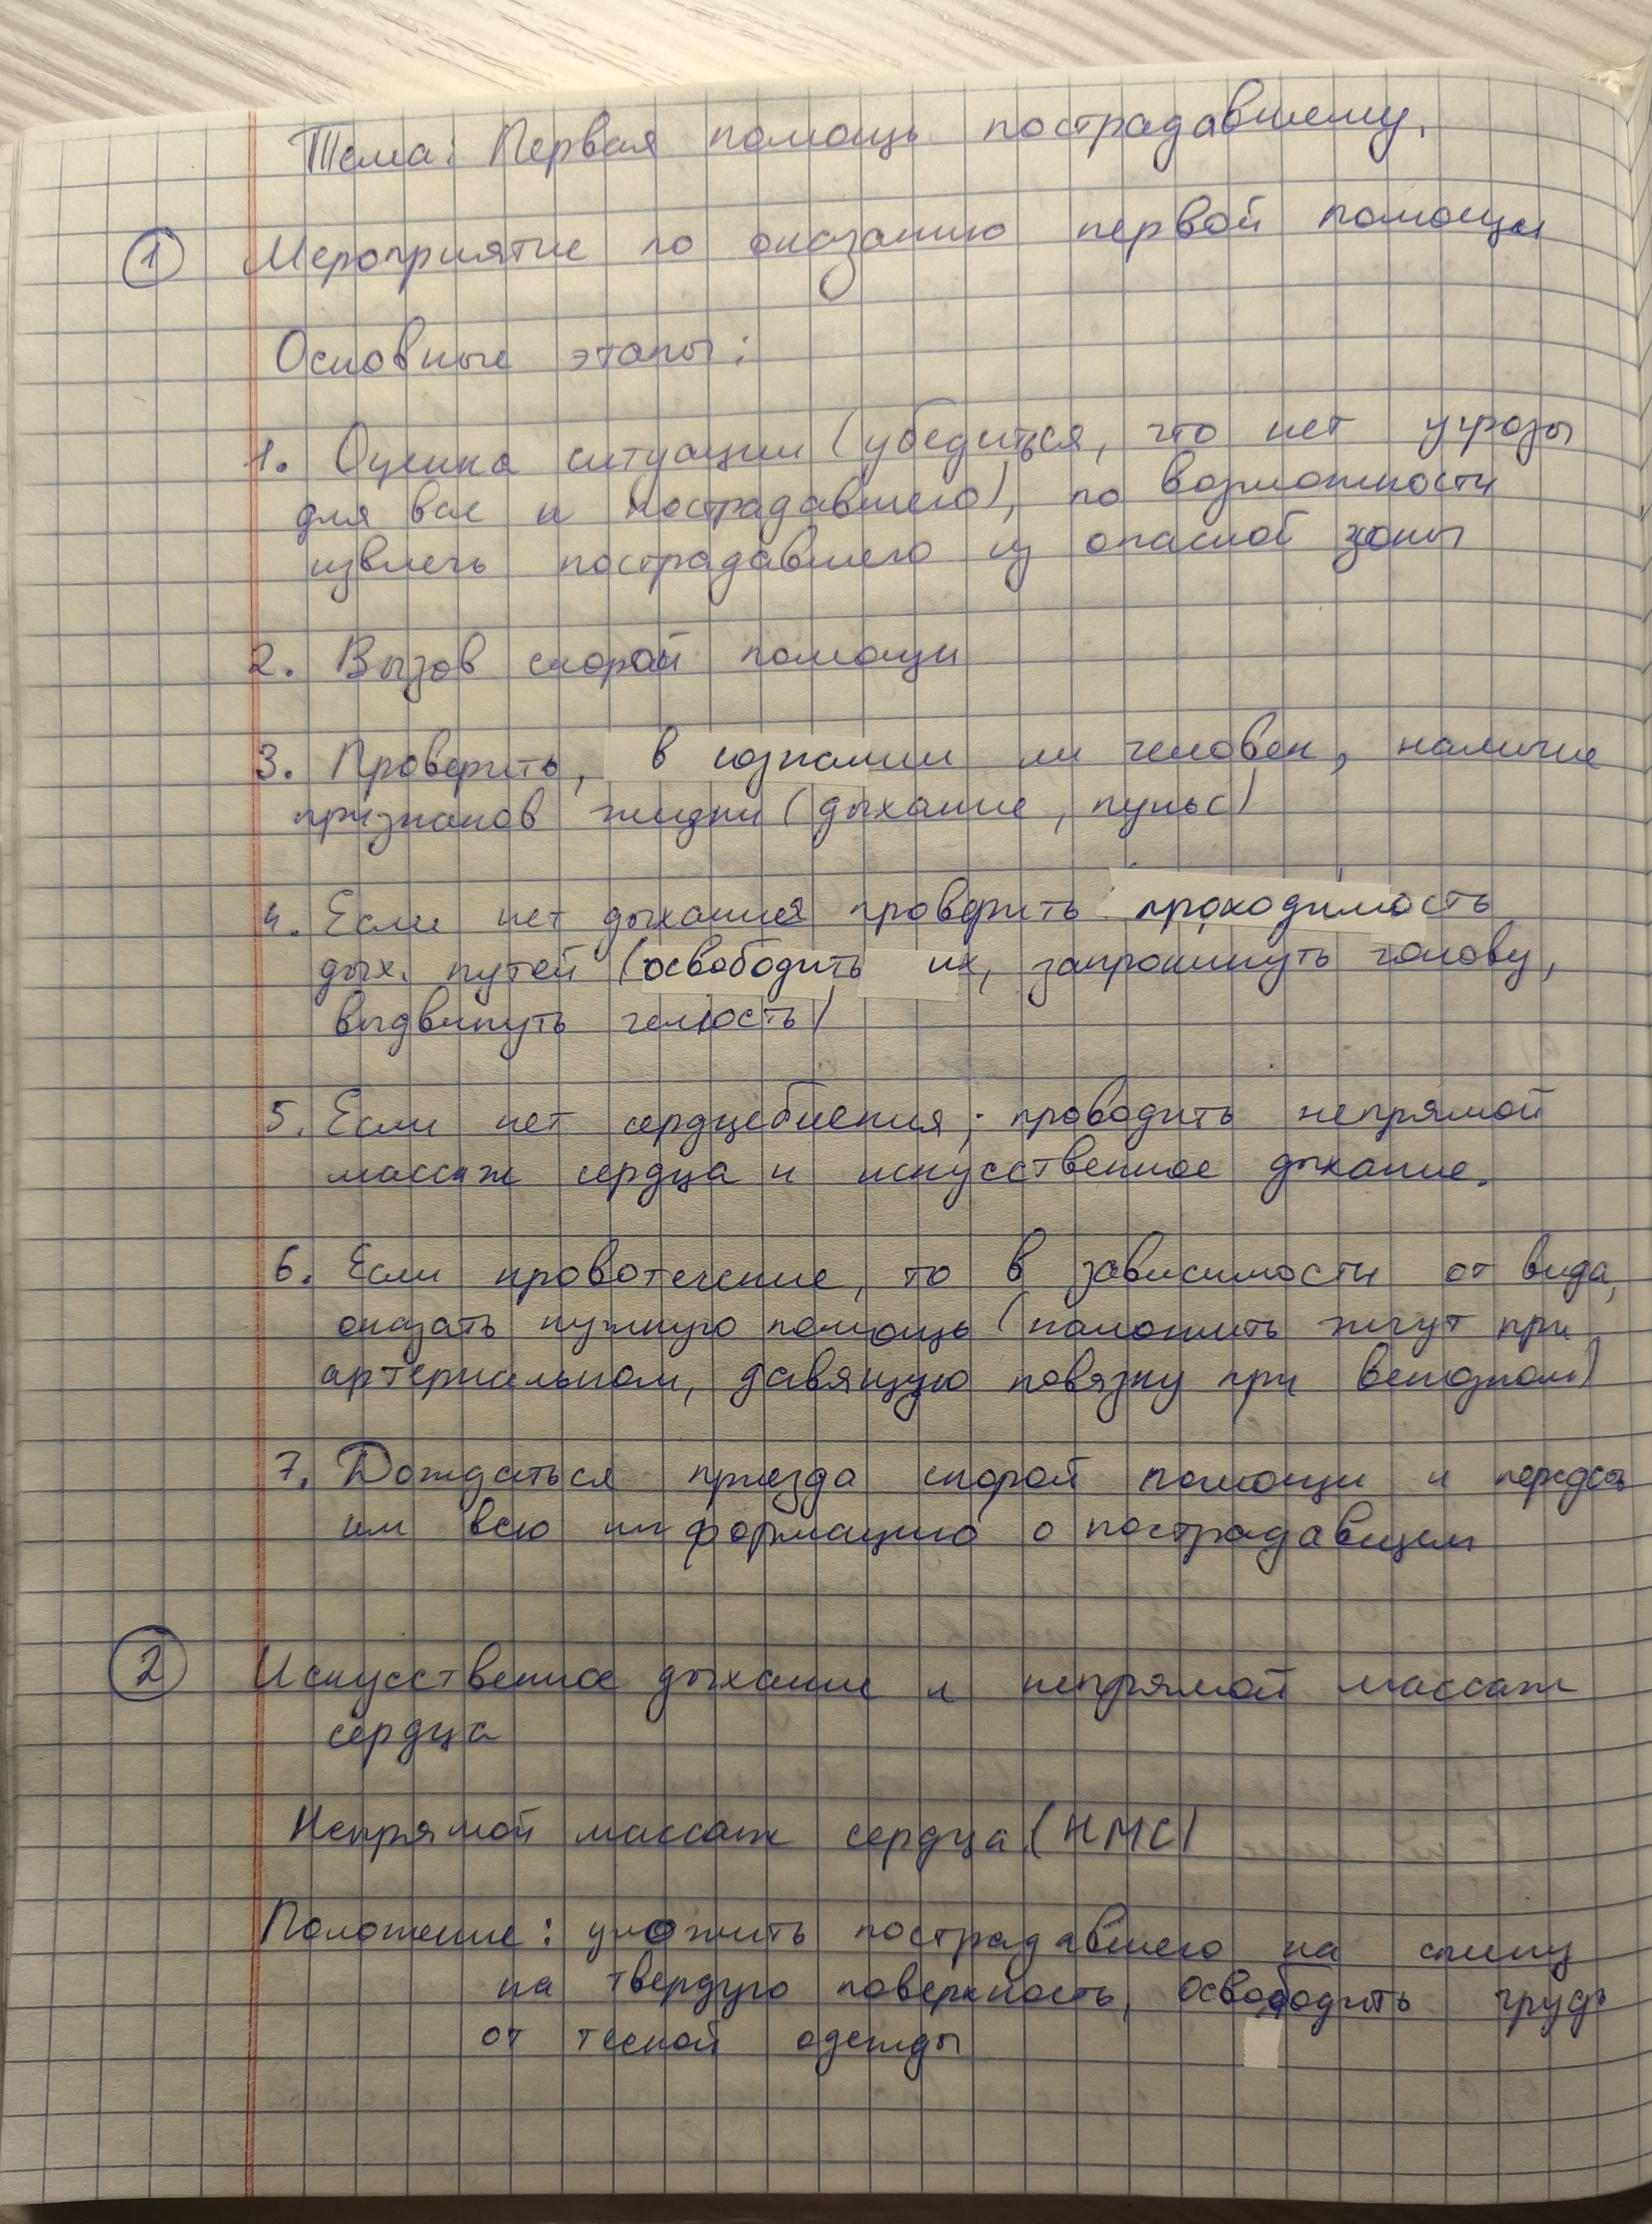 Тема: Первая помощь пострадавшему.
1 Мероприятие по оказанию первой помощи
Основные этапы:
1. Оценка ситуации (убедиться, что нет угрозы
для вас и пострадавшего), по возможности
извлечь пострадавшего из опасной зоны
2. Вызов скорой помощи
3. Проверить, в сознании ли человек, наличие
признаков жизни (дыхание, пульс)
4. Если нет дыхания проверить проходимость
дых. путей (освободить их, запрокинуть голову,
выдвинуть челюсть)
5. Если нет сердцебиения; проводить непрямой
массаж сердца и искусственное дыхание.
6. Если кровотечение, то в зависимости от вида,
оказать нужную помощь (наложить жгут при
артериальном, давящую повязку при венозном)
7. Дождаться приезда скорой помощи и передать
им всю информацию о пострадавшем
2 Искусственное дыхание и непрямой массаж
сердца
Непрямой массаж сердца (НМС)
Положение: уложить пострадавшего на спину
на твердую поверхность, освободить грудь
от тесной одежды